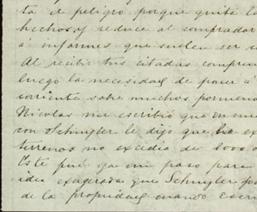 ta el peligro, porque quita la
hechos y reduce al comprador
a informes que suelen ser
Al recibir tus citadas compren
luego la necesidad de poner a
corriente sobre muchos pormeno
Nicolas me escribió que en mi
con Schuyler le dijo que los ex
terrenos no excedio de 5000
Este fué ya un paso para
idea exagerada que Schuyler for
de la propiedad cuando escri